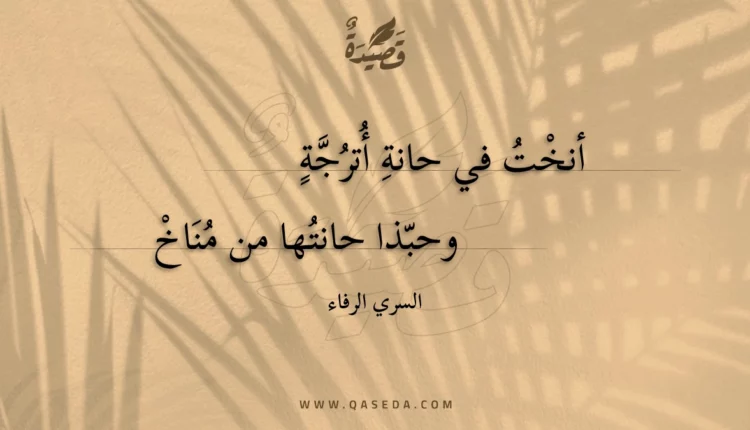 قَصِيدَةٌ
أنخْتُ في حانةِ أُترُجَّةٍ
وحبّذا حانتُها من مُنَاخْ
السري الرفاء
WWW.QASEDA.COM